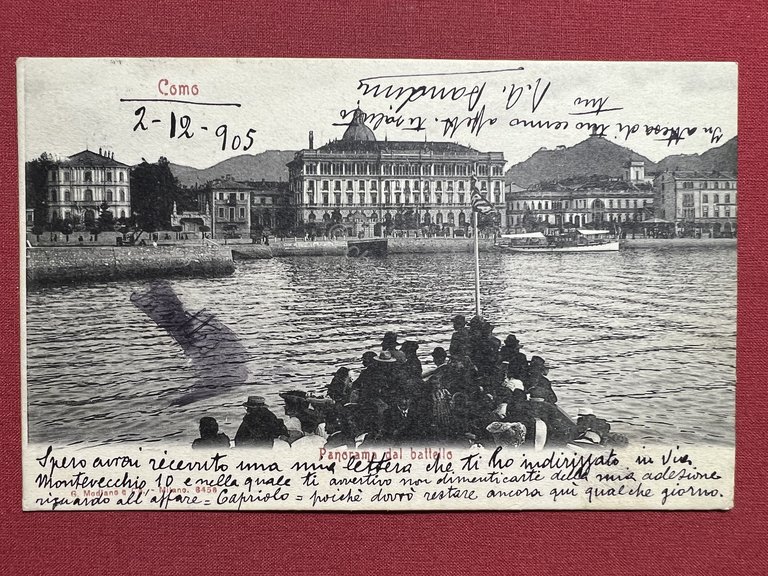 Como
2-12-905
Panorama dal battello
Spero avrai ricevuto una mia lettera che ti ho indirizzato in via
Montevecchio 10 e nella quale ti avvertivo non dimenticarte della mia adesione
G. Modiano e C. - Milano. 8456
riguardo all'affare = Capriolo = poichè dovrò restare ancora quì qualche giorno.
In attesa di tuo cenno affett. ti saluto
tuo